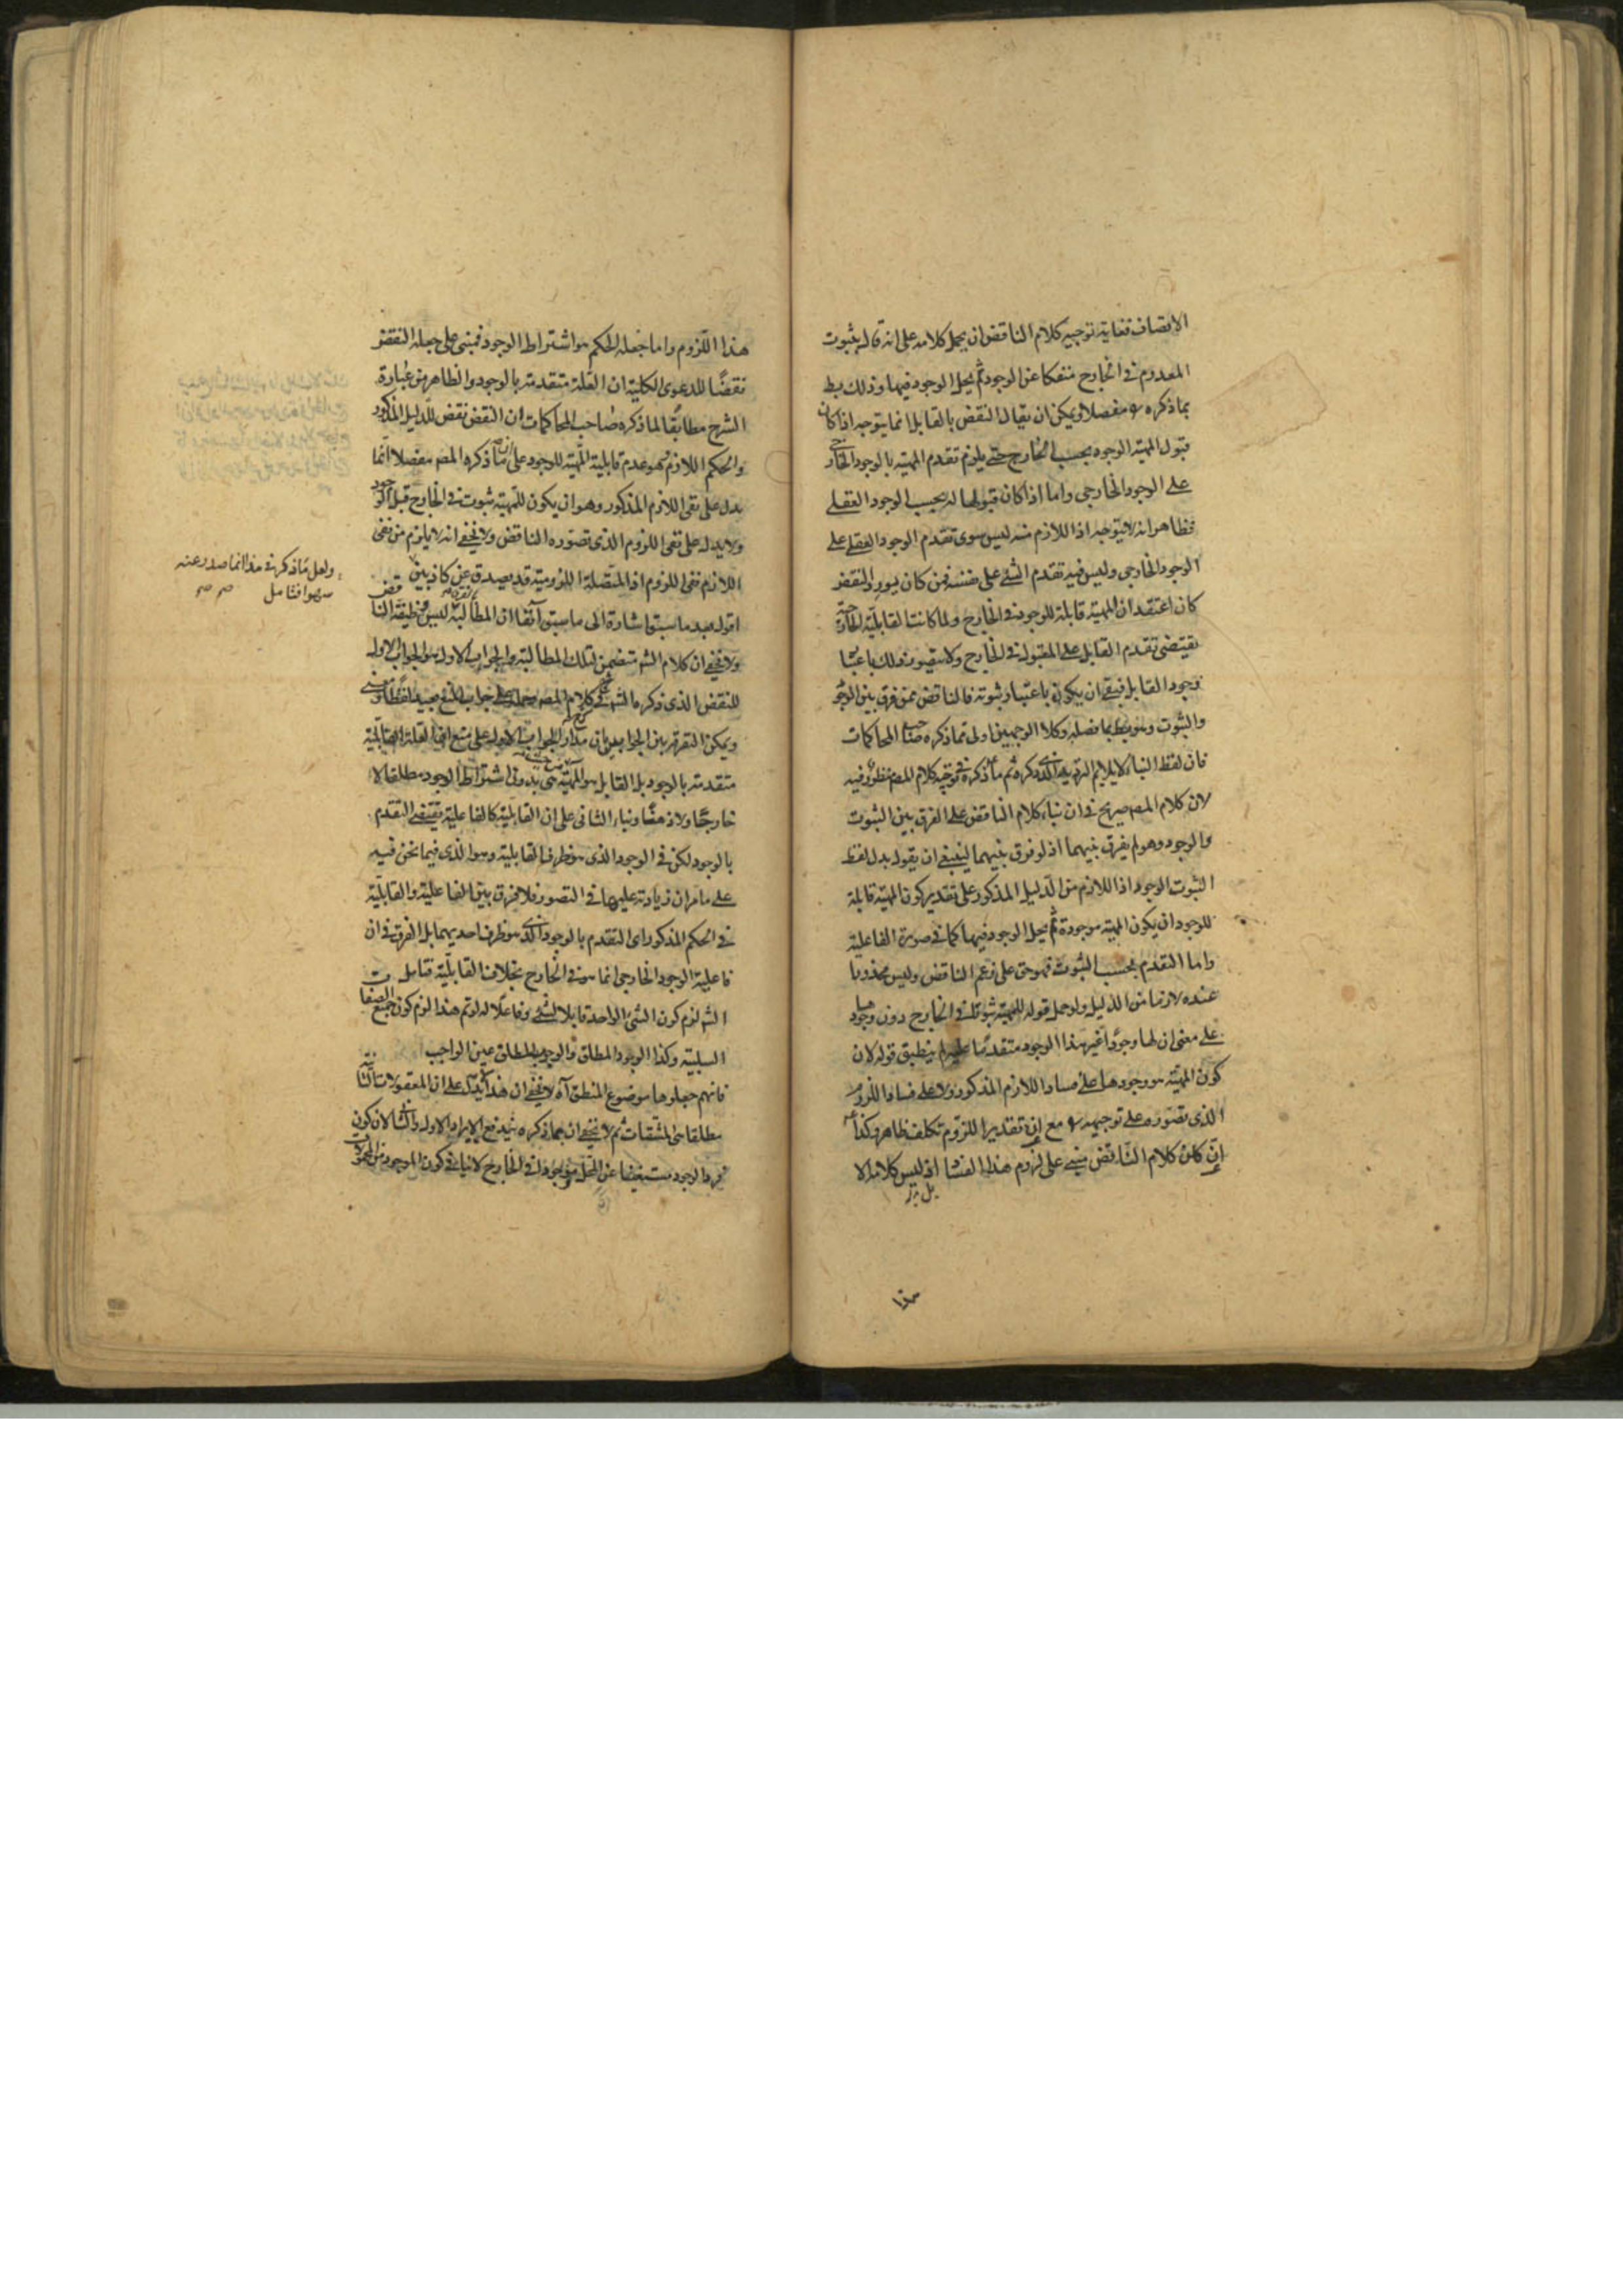 الاتصاف فغاية توجيه كلام الناقض ان يحمل كلامه على انه قال بثبوت
المعدوم في الخارج منفكا عن الوجود ثم يحل الوجود فيها وذلك بط
بما ذكره مفصلا ويمكن ان يقال النقض بالقابل انما يتوجه اذا كان
قبول المهية الوجود بحسب الخارج حتى يلزم تقدم المهية بالوجود الخارجي
على الوجود الخارجي واما اذا كان قبولها له بحسب الوجود العقلي
فظاهر انه لا يتوجه اذ اللازم منه ليس سوى تقدم الوجود العقلي على
الوجود الخارجي وليس فيه تقدم الشئ على نفسه فمن كان يورد النقض
كان اعتقد ان المهية قابلة للوجود في الخارج ولما كانت القابلية الخارجية
تقتضى تقدم القابل على المقبول في الخارج ولا يتصور ذلك باعتبار
وجود القابل فبقى ان يكون باعتبار ثبوته فالناقض ممن فرق بين الوجود
والثبوت وهو بط بما فصله وكلا الوجهين اولى مما ذكره صاحب المحاكمات
فان لفظ البناء لا يلايم التوجيه الذى ذكره ثم ما ذكره في توجيه كلام المص منظور فيه
لان كلام المص صريح في ان بناء كلام الناقض على الفرق بين الثبوت
والوجود وهو لم يفرق بينهما اذ لو فرق بينهما لينبغى ان يقول بدل لفظ
الثبوت الوجود اذ اللازم من الدليل المذكور على تقدير كون المهية قابلة
للوجود ان يكون المهية موجودة ثم يحل الوجود فيها كما في صورة الفاعلية
واما التقدم بحسب الثبوت فهو حق على زعم الناقض وليس محذورا
عنده لازما من الدليل ولو حمل قوله للمهية ثبوتا في الخارج دون وجودها
على معنى ان لها وجودا غير هذا الوجود متقدما عليه لم ينطبق قوله لان
كون المهية هو وجودها على فساد اللازم المذكور ولا على فساد اللزوم
الذى تصوره على توجيهه مع ان تقدير اللزوم تكلف ظاهر وكذا
ان كان كلام الناقض مبنى على لزوم هذا الفساد اذ ليس كلامه الا
هذا
هذا اللزوم واما جعله الحكم هو اشتراط الوجود فمبنى على جعله النقض
نقضا للدعوى الكلية ان العلة متقدمة بالوجود والظاهر من عبارة
الشرح مطابقا لما ذكره صاحب المحاكمات ان النقض نقض للدليل المذكور
والحكم اللازم هو عدم قابلية المهية للوجود على ان ما ذكره المص مفصلا انما
يدل على نفى اللازم المذكور وهو ان يكون للمهية ثبوت في الخارج قبل الوجود
ولا يدل على نفى اللزوم الذى تصوره الناقض ولا يخفى انه لا يلزم من نفى
اللازم نفى اللزوم اذ المتصلة اللزومية قد يصدق عن كاذبين
اقول بعد ما سبق اشارة الى ما سبق آنفا ان المطالبة ليس وظيفة الناقض
ولا يخفى ان كلام الش متضمن لتلك المطالبة والجواب الاول هو الجواب الاول
للنقض الذى ذكره الش في كلام المص
ويمكن التفرقة بين الجوابين بان مدار الجواب الاول على منع ان العلة القابلية
متقدمة بالوجود بل القابل هو المهية من حيث هى بدون اشتراط الوجود مطلقا لا
خارجا ولا ذهنا وبناء الثانى على ان القابلية كالفاعلية يقتضى التقدم
بالوجود لكن في الوجود الذى هو ظرف القابلية وهو الذى فيما نحن فيه
على ما مر ان زيادته عليها في التصور فلا فرق بين الفاعلية والقابلية
في الحكم المذكور اى التقدم بالوجود الذى هو ظرف احديهما بل الفرق في ان
فاعلية الوجود الخارجى انما هو في الخارج بخلاف القابلية فتامل
الش لزم كون الشئ الواحد قابلا لشئ وفاعلا له لو تم هذا لزم كون جميع الصفات
السلبية وكذا الوجود المطلق والوجوب المطلق عين الواجب
فانهم جعلوها موضوع المنطق آه لا يخفى ان هذا يدل على ان المعقولات الثانية
مطلقا هى المشتقات ثم لا يخفى ان بما ذكره يندفع الايراد الاول والثانى لان كون
فرد الوجود مستغنيا عن المحل موجودا في الخارج لا ينافى كون الموجود من المحمولات
ولعل ما ذكره في هذا انما صدر عنه
سهوا فتامل